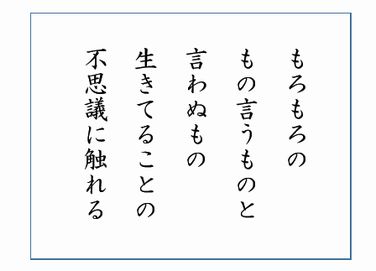 もろもろの
もの言うものと
言わぬもの
生きてることの
不思議に触れる